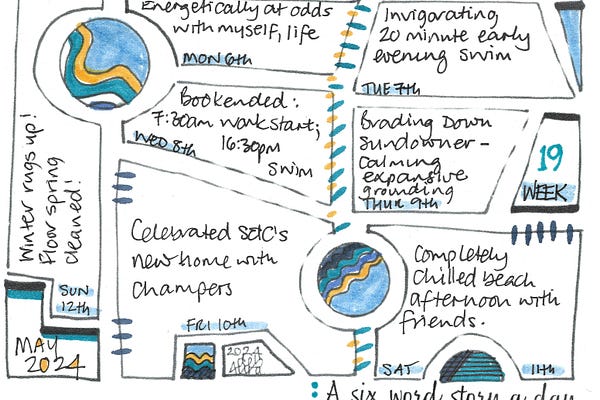 Energetically at odds
with myself, life
MON 6th
Invigorating
20 minute early
evening swim
TUE 7th
Bookended:
7:30am work start;
16:30pm
Swim
WED 8th
Brading Down
Sundowner-
calming
expansive
grounding
THUR 9th
19
WEEK
Celebrated SotC's
new home with
Champers
FRI 10th
2024
Completely
Chilled beach
afternoon with
friends.
SAT 11th
Winter rugs up!
Floor spring
cleaned!
SUN
12th
MAY
2024
A six word story a day